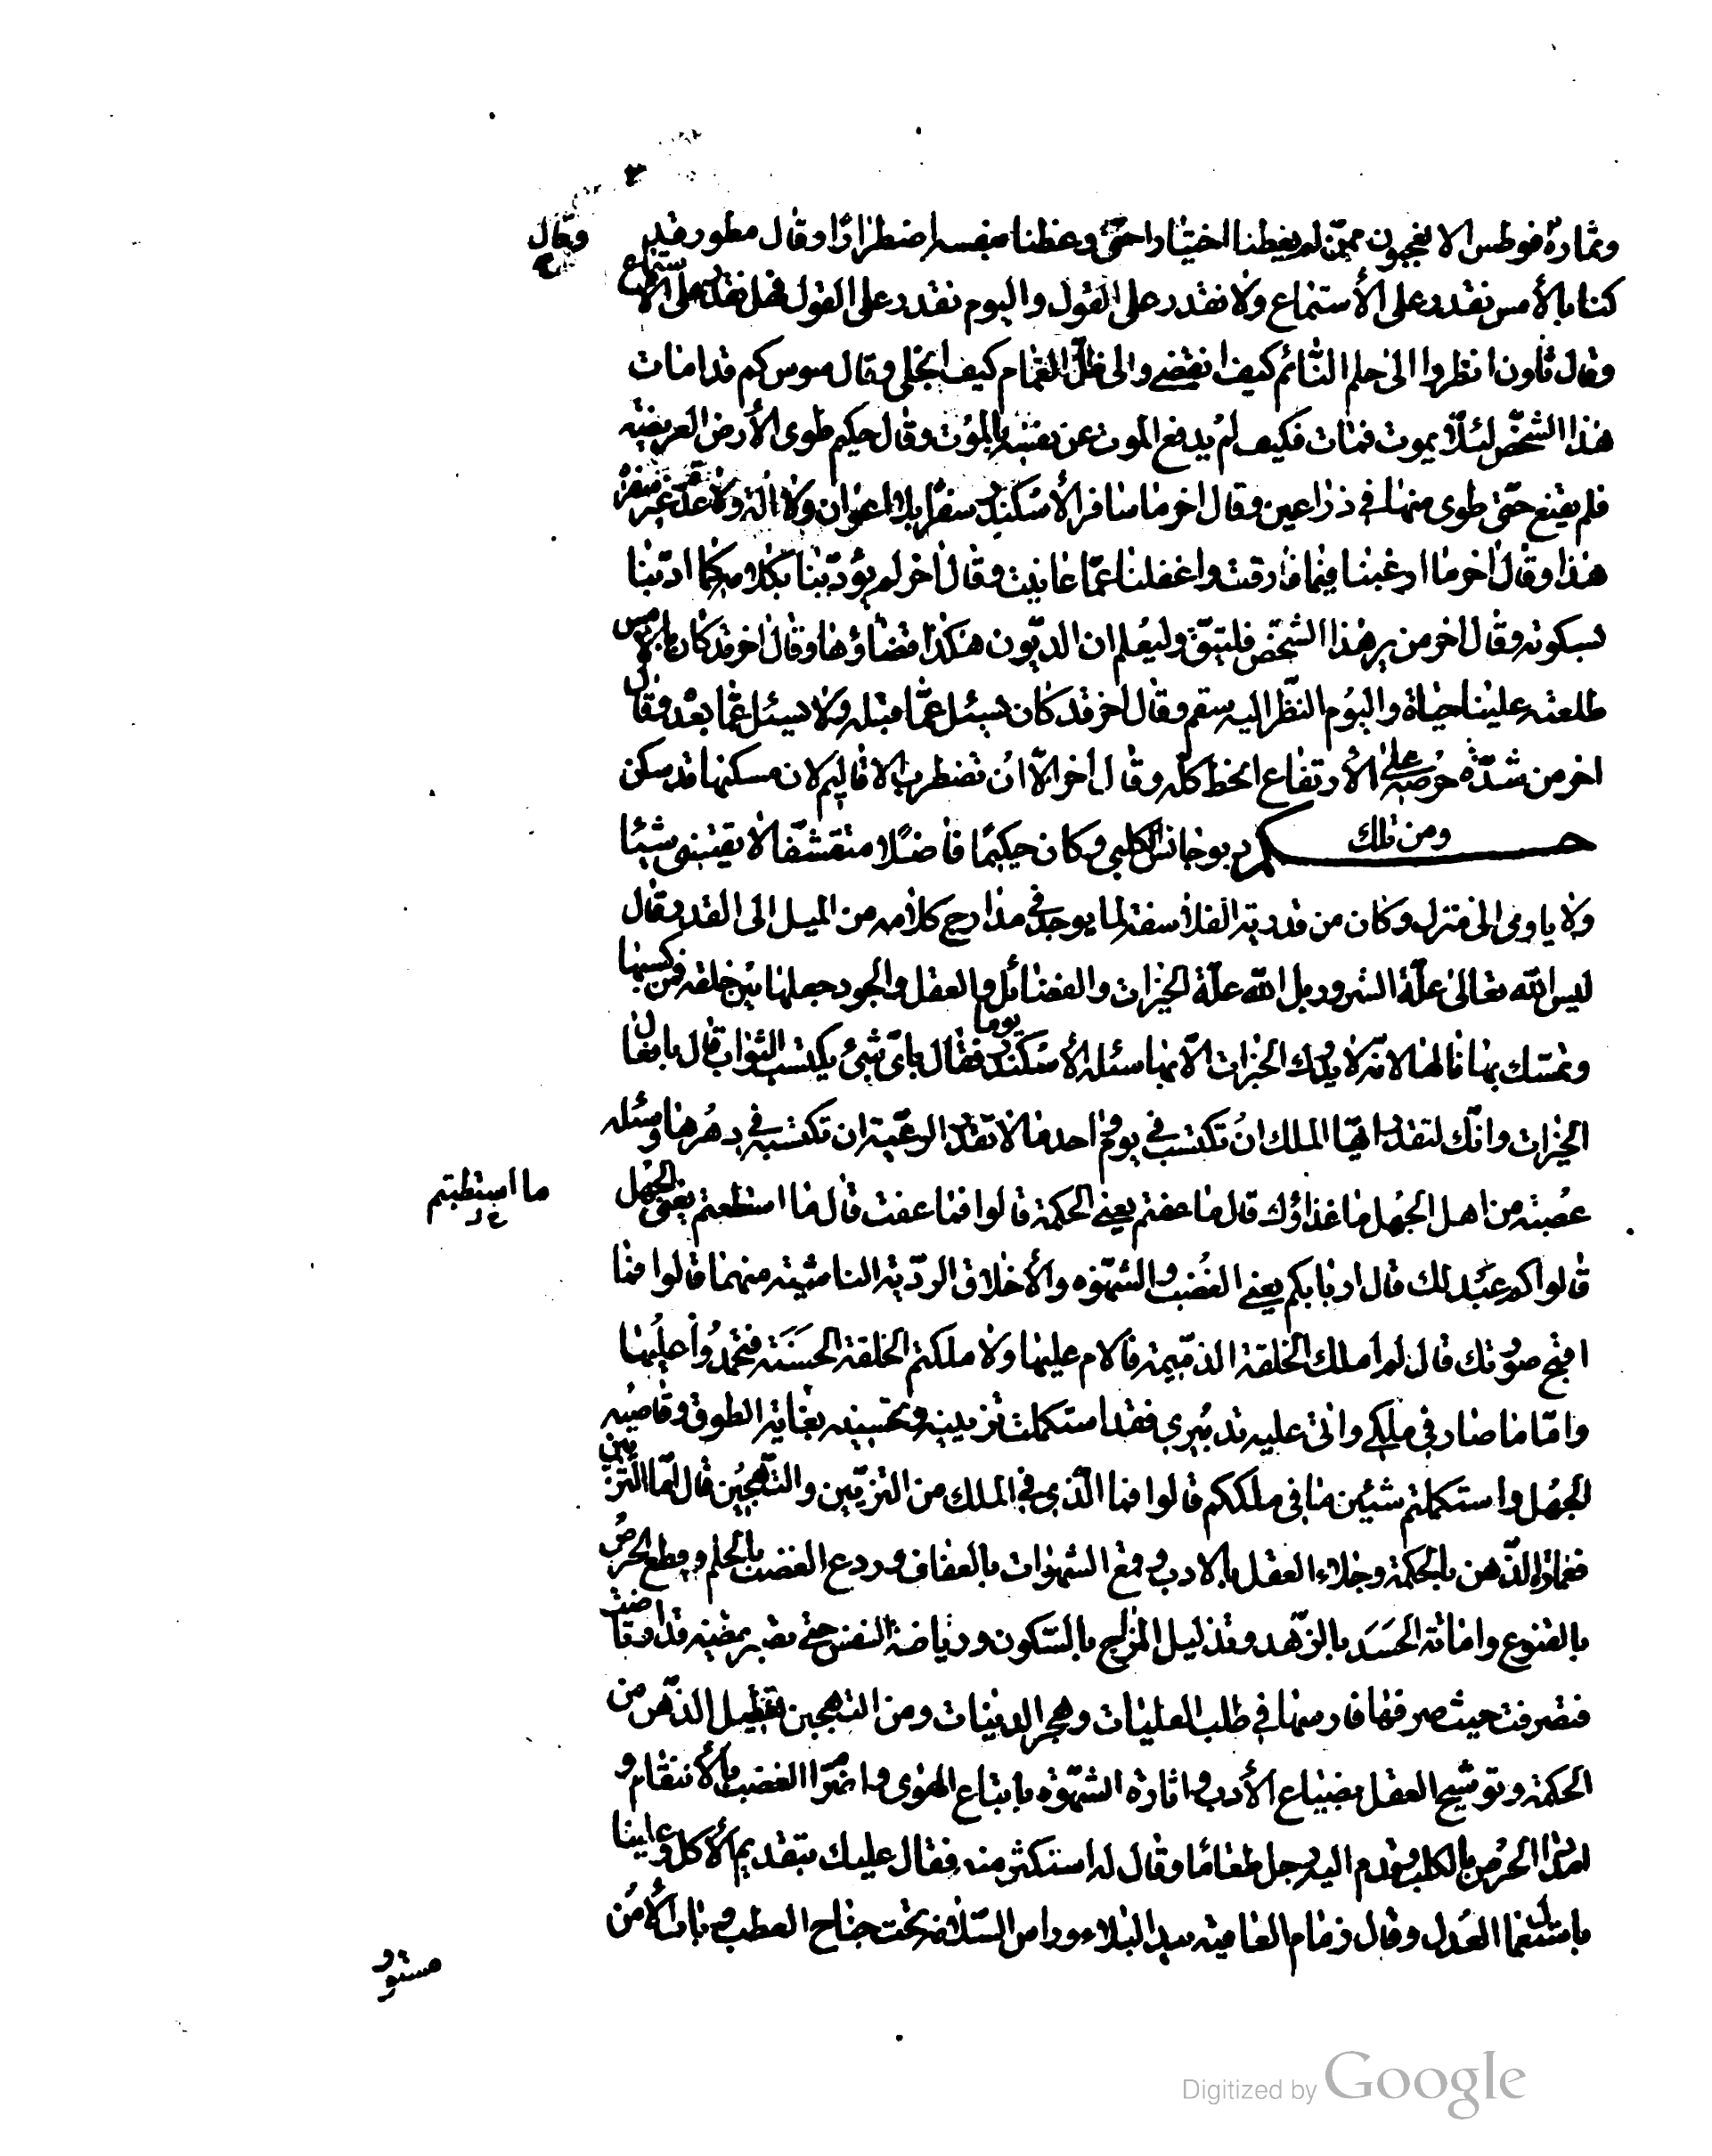 وقال فوطس الا تعجبون ممّن لم يعظنا اختيارا حتّى وعظنا بنفسه اضطرارًا وقال مطور قد
وقال
كنا بالأمس نقدر على الأستماع ولا نقدر على القول واليوم نقدر على القول فهل نقدر على الاستماع
وقال ثاون انظروا الى حلم النّائم كيف انقضى والى ظلّ الغمام كيف انجلى وقال سوس كم قد امات
هذا الشخص لئلّا يموت فمات فكيف لم يدفع الموت عن نفسه بالموت وقال حكيم طوى الأرض العريضة
فلم يقنع حتّى طوى منها في ذراعين وقال اخر ما سافر الأسكندر سفرًا بلا اعوان ولا الة ولا عدّة غير سفره
هذا وقال اخر ما ارغبنا فيما فارقت واغفلنا عمّا عاينت وقال اخر لم يؤدّبنا بكلامه كما ادّبنا
بسكوته وقال اخر من ير هذا الشخص فليتق وليعلم ان الديون هكذا قضاؤها وقال اخر قد كان بالامس
طلعته علينا حياة واليوم النّظر اليه سقم وقال اخر قد كان يسئل عمّا قبله ولا يسئل عمّا بعده وقال
اخر من شدّة حرصه على الأرتفاع انحط كله وقال اخر الآن تضطرب الاقاليم لان مسكنها قد سكن
ومن ذلك حكم ديوجانس الكلبي وكان حكيمًا فاضلًا متقشفًا لا يقتنى شيئًا
ولا ياوى الى منزل وكان من قدرية الفلاسفة لما يوجد في مدارج كلامه من الميل الى القدر وقال
ليس الله تعالى علّة الشرور بل الله علّة الخيرات والفضائل والعقل والجود جعلها بين خلقه فمن كسبها
وتمسّك بها نالها لانّه لا يدرك الخيرات الّا بها سئله الأسكندر يوما فقال باىّ شىء يكتسب الثواب قال بافعال
الخيرات وانّك لتقدر ايّها الملك ان تكتسب في يوم واحد ما لا تقدر الرعيّة ان تكتسبه في دهرها وسئله
عصبة من اهل الجهل ما غذاؤك قال ما عفتم يعني الحكمة قالوا فما عفت قال ما استطبتم يعني الجهل
ما استطبتم
قالوا كم عبد لك قال اربابكم يعني الغضب والشهوة والأخلاق الرديّة الناشية منهما قالوا فما
اقبح صورتك قال لم املك الخلقة الذميمة فالام عليها ولا ملكتم الخلقة الحسنة فتحمدوا عليها
وامّا ما صار في ملكي واتى عليه تدبيري فقد استكملت تزيينه وتحسينه بغاية الطوق وقاصية
الجهد واستكملتم شين ما في ملككم قالوا فما الّذي في الملك من التزيين والتهجين قال امّا التزيين
فعمارة الذّهن بالحكمة وجلاء العقل بالادب وقمع الشهوات بالعفاف وردع الغضب بالحلم وقطع الحرص
بالقنوع واماتة الحسد بالزّهد وتذليل المزاج بالسّكون ورياضة النفس حتى تصير مطيّة قد ارتاضت
فتصرفت حيث صرفها فارسها في طلب العليات وهجر الدنيات ومن التهجين تعطيل الذّهن من
الحكمة وتوسّيخ العقل بضياع الأدب واثارة الشّهوة باتباع الهوى واضرام الغضب بالأنتقام و
امداد الحرص بالكلب وقدم اليه رجل طعامًا وقال له استكثر منه فقال عليك بتقديم الأكل وعلينا
باستعمال العدل وقال زمام العافية بيد البلاء وراس السّلامة تحت جناح العطب وباب الأمن
مستور
Digitized by Google